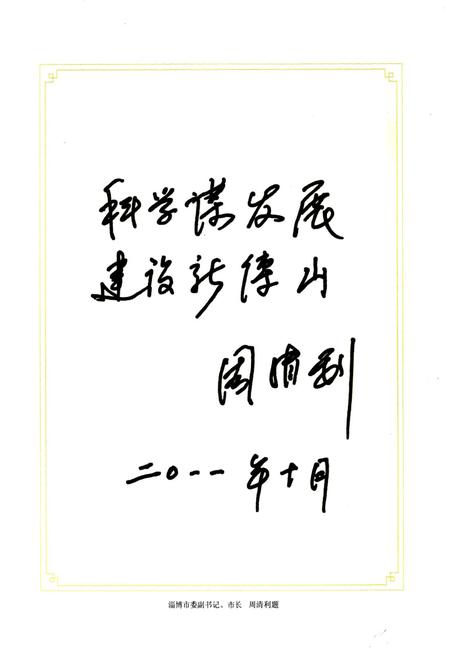 科学谋发展
建设新傅山
周清利
二〇一一年十月
淄博市委副书记、市长 周清利题